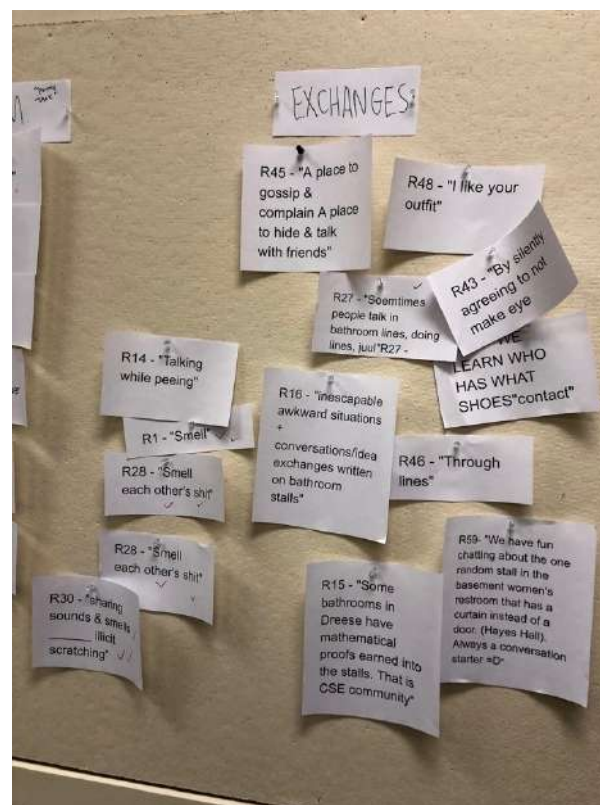 EXCHANGES
R45 - "A place to
gossip &
complain A place
to hide & talk
with friends"
R48 - "I like your
outfit"
R43 - "By silently
agreeing to not
make eye
R27 - "Soemtimes
people talk in
bathroom lines, doing
lines, juul"R27 -
WE
LEARN WHO
HAS WHAT
SHOES"contact"
R14 - "Talking
while peeing"
R1 - "Smell"
R28 - "Smell
each other's shit"
R28 - "Smell
each other's shit"
R30 - "sharing
sounds & smells
______ illicit
scratching"
R16 - "inescapable
awkward situations
+
conversations/idea
exchanges written
on bathroom
stalls"
R46 - "Through
lines"
R15 - "Some
bathrooms in
Dreese have
mathematical
proofs earned into
the stalls. That is
CSE community"
R59- "We have fun
chatting about the one
random stall in the
basement women's
restroom that has a
curtain instead of a
door. (Hayes Hall).
Always a conversation
starter =D"